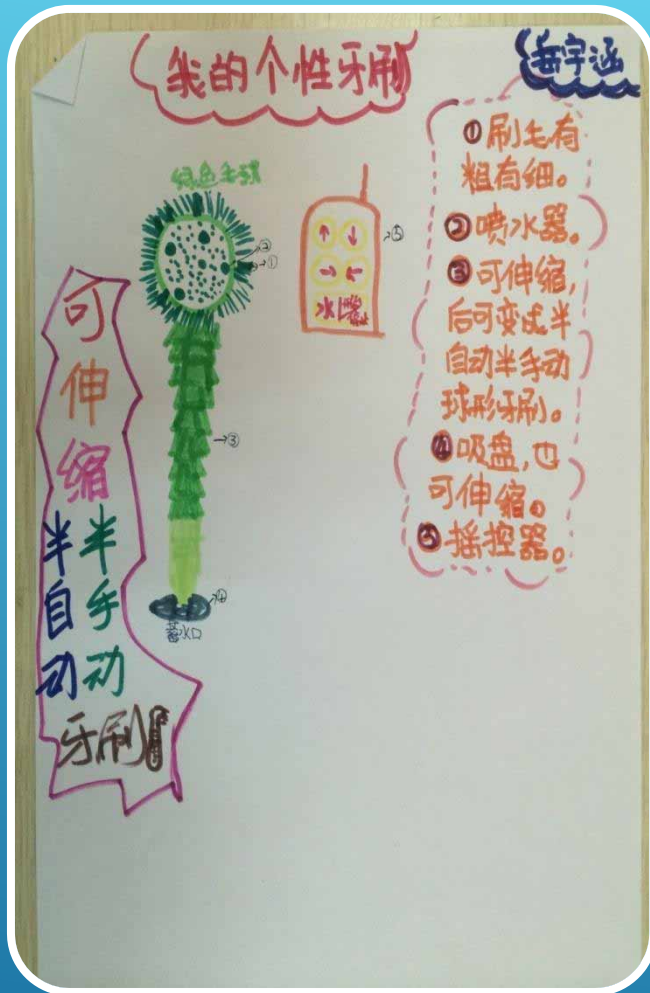 我的个性牙刷
岳宇涵
绿色毛球
②
①
⑤
水
③
④
蓄水口
可伸缩
半自动
半手动
牙刷
①刷毛有
粗有细。
②喷水器。
③可伸缩,
后可变成半
自动半手动
球形牙刷。
④吸盘,也
可伸缩。
⑤摇控器。